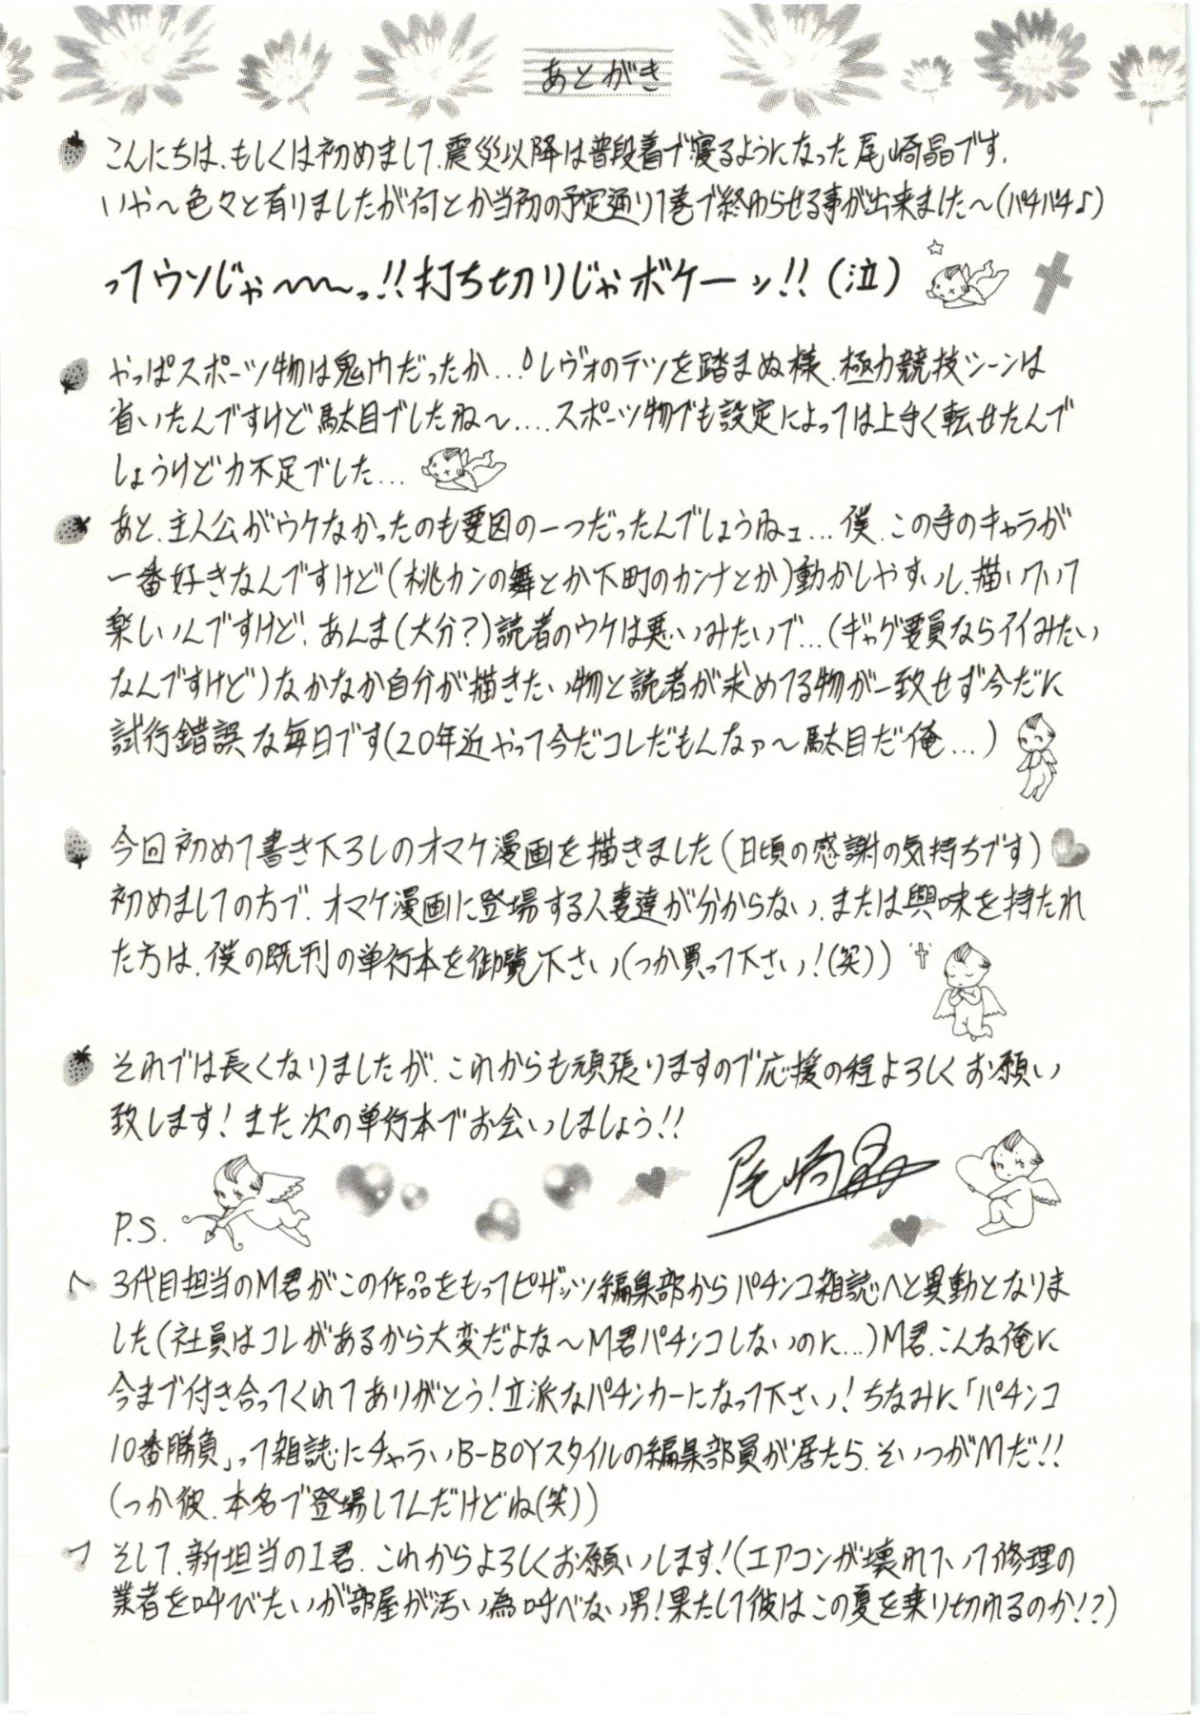 あとがき
こんにちは、もしくは初めまして、震災以降は普段着で寝るようになった尾崎晶です。
いや〜色々と有りましたが何とか当初の予定通り1巻で終わらせる事が出来ました〜(パチパチ♪)
ってウソじゃ〜〜〜っ!!打ち切りじゃボケーッ!!(泣)
やっぱスポーツ物は鬼門だったか…レヴォのテツを踏まぬ様、極力競技シーンは
省いたんですけど駄目でしたね〜….スポーツ物でも設定によっては上手く転せたんで
しょうけど力不足でした…
あと、主人公がウケなかったのも要因の一つだったんでしょうねェ…僕、この手のキャラが
一番好きなんですけど(桃カンの舞とか下町のカンナとか)動かしやすいし、描いていて
楽しいんですけど、あんま(大分?)読者のウケは悪いみたいで…(ギャグ要員ならイイみたい
なんですけど)なかなか自分が描きたい物と読者が求めてる物が一致せず今だに
試行錯誤な毎日です(20年近やって今だコレだもんなァ〜駄目だ俺…)
今回初めて書き下ろしのオマケ漫画を描きました(日頃の感謝の気持ちです)
初めましての方で、オマケ漫画に登場する人妻達が分からない、または興味を持たれ
た方は、僕の既刊の単行本を御覧下さい(つか買って下さい!(笑))
それでは長くなりましたが、これからも頑張りますので応援の程よろしくお願い
致します!また次の単行本でお会いしましょう!!
尾崎晶
P.S.
3代目担当のM君がこの作品をもってピザッツ編集部からパチンコ雑誌へと異動となりま
した(社員はコレがあるから大変だよな〜M君パチンコしないのに…)M君、こんな俺に
今まで付き合ってくれてありがとう!立派なパチンカーになって下さい!ちなみに「パチンコ
10番勝負」って雑誌にチャラいB-BOYスタイルの編集部員が居たら、そいつがMだ!!
(つか彼、本名で登場してんだけどね(笑))
そして、新担当のI君、これからよろしくお願いします!(エアコンが壊れていて修理の
業者を呼びたいが部屋が汚い為呼べない男!果たして彼はこの夏を乗り切れるのか!?)